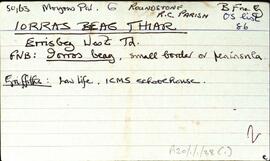 50, 63 Moyrus Par. G Roundstone B Fna. G
R.C. PARISH OS list
IORRAS BEAG THIAR 86
Errisbeg West Td.
FNB: Iorras beag, small border or peninsula
Griffiths: Law life, ICMS schoolhouse.
A20/1/28 (1)